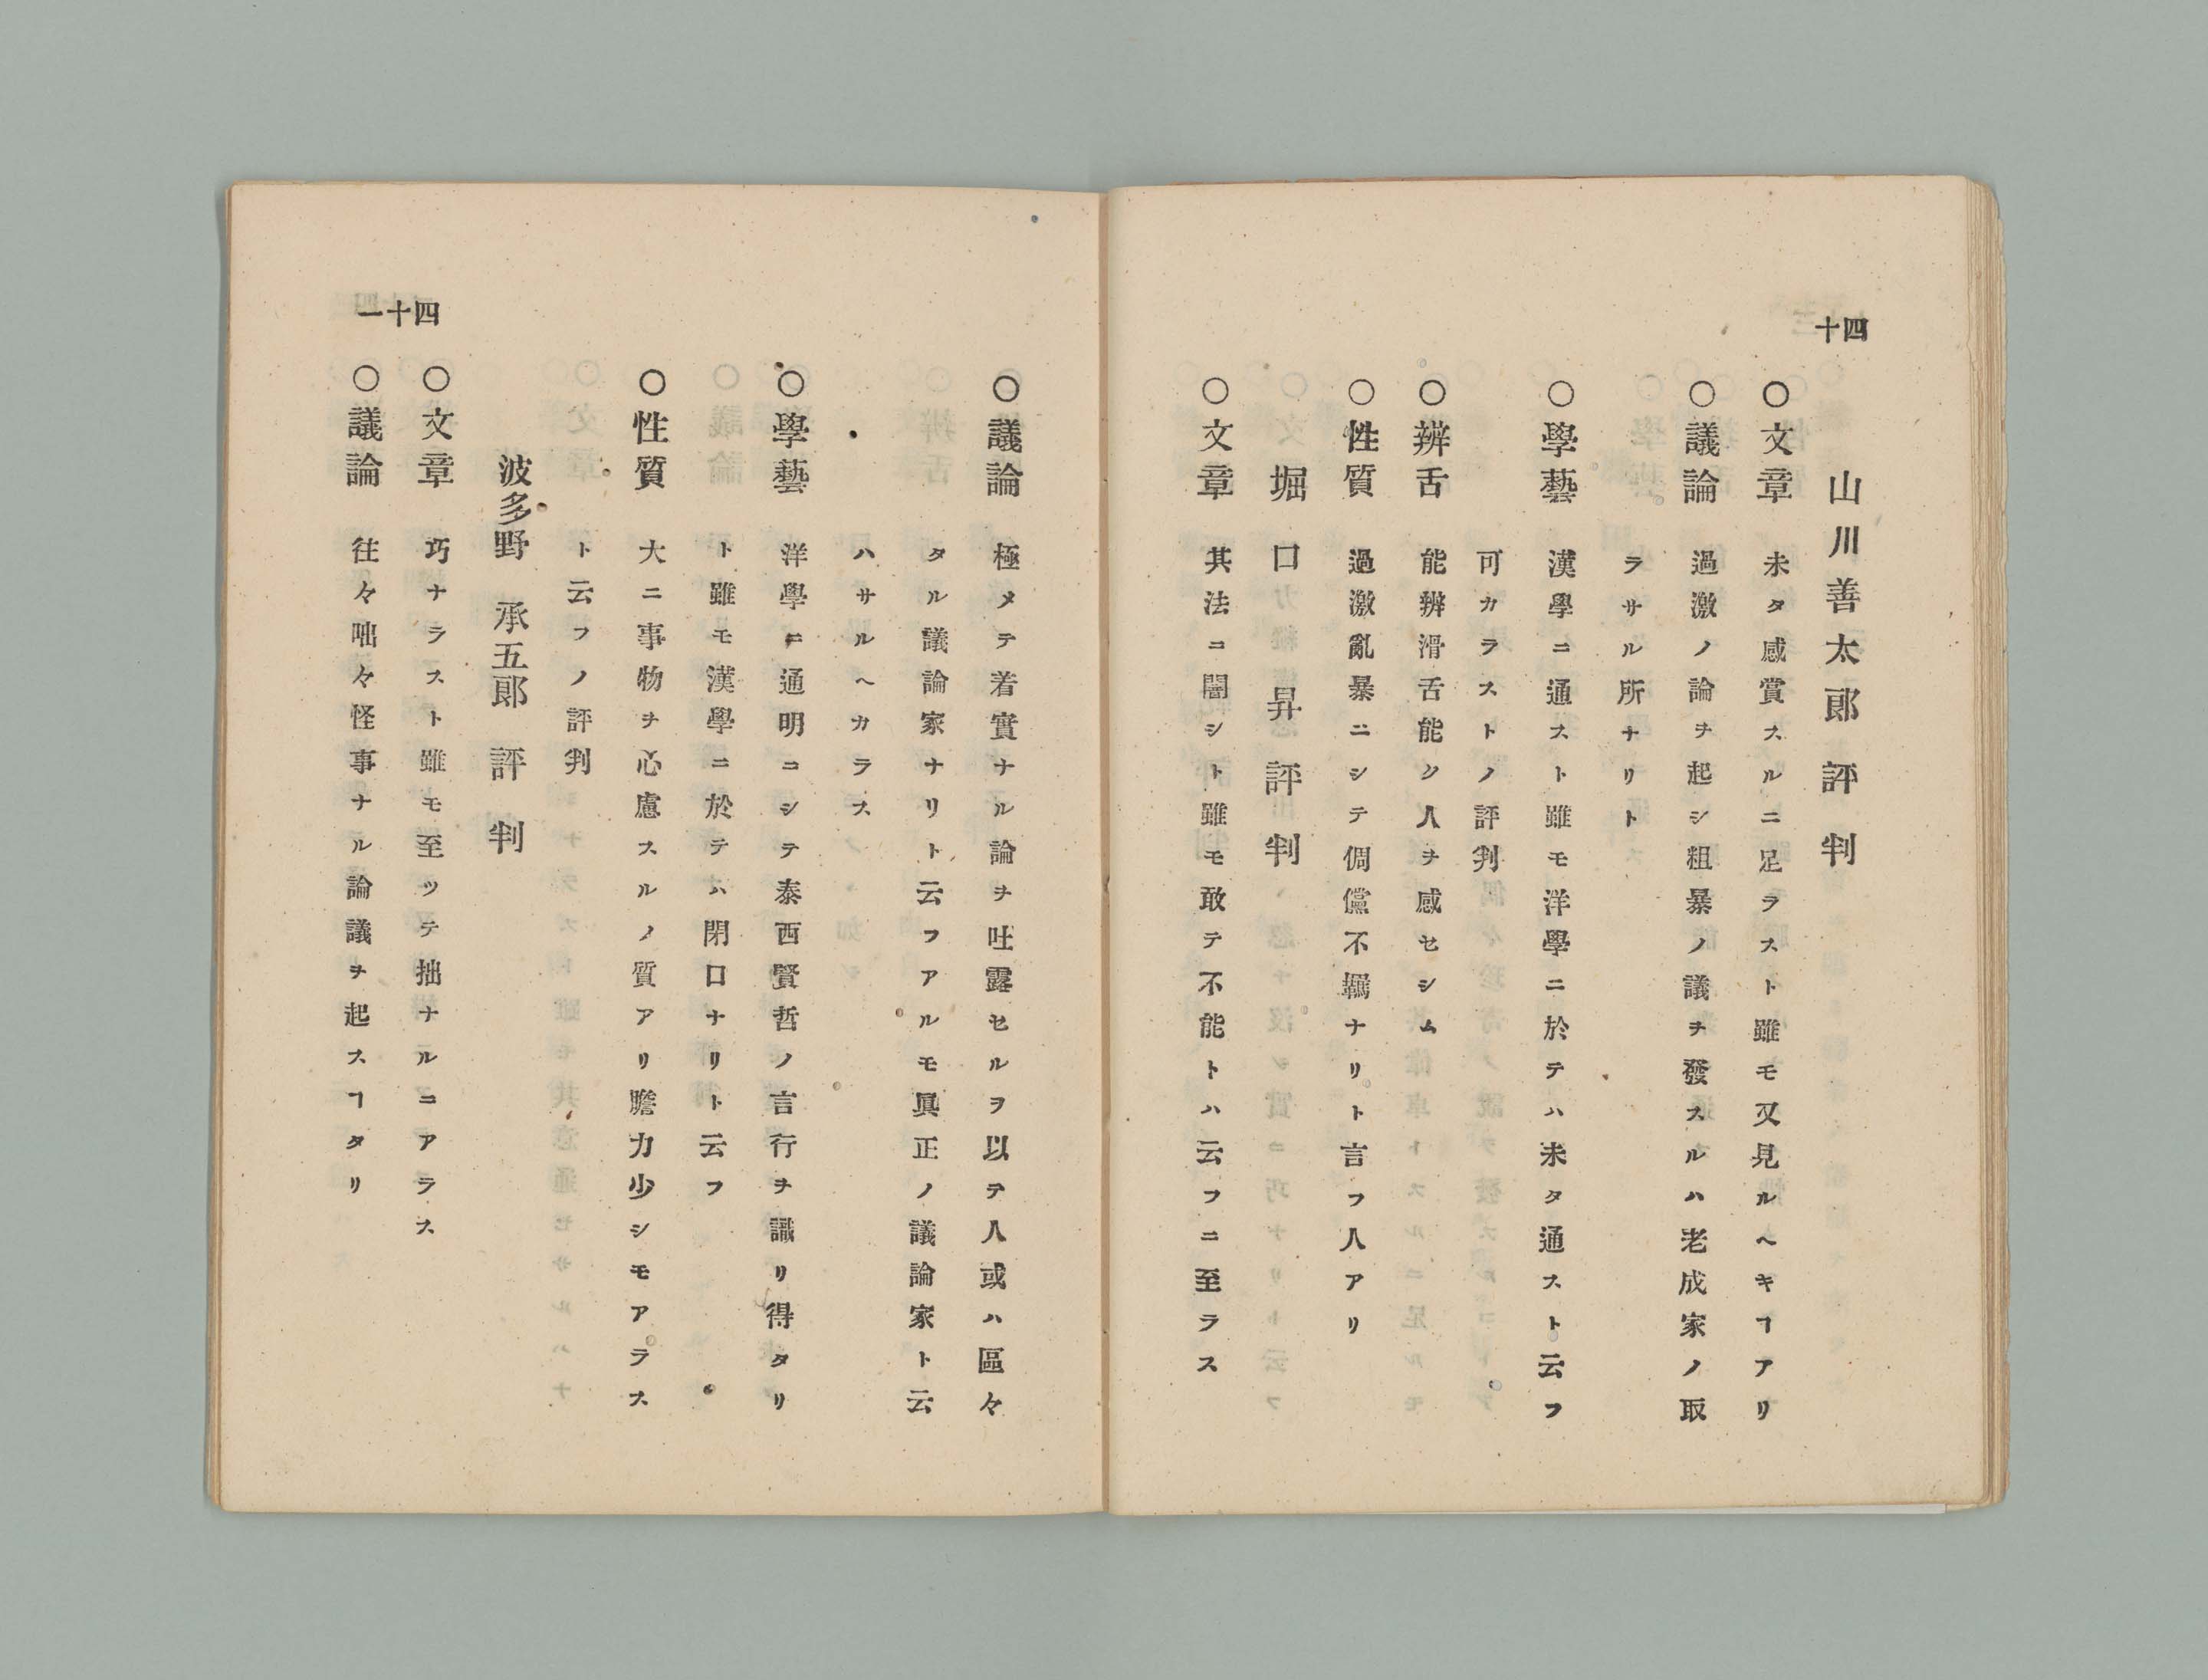 四十
山川善太郎評判
○文章 未タ感賞スルニ足ラスト雖モ又見ルヘキヿアリ
○議論 過激ノ論ヲ起シ粗暴ノ議ヲ發スルハ老成家ノ取
ラサル所ナリト
○學藝 漢學ニ通スト雖モ洋學ニ於テハ未タ通スト云フ
可カラストノ評判
○辨舌 能辨滑舌能ク人ヲ感セシム
○性質 過激亂暴ニシテ倜儻不羈ナリト言フ人アリ
堀口昇評判
○文章 其法ニ闇シト雖モ敢テ不能トハ云フニ至ラス
四十一
○議論 極メテ着實ナル論ヲ吐露セルヲ以テ人或ハ區々
タル議論家ナリト云フアルモ眞正ノ議論家ト云
ハサルヘカラス
○學藝 洋學ニ通明ニシテ泰西賢哲ノ言行ヲ識リ得タリ
ト雖モ漢學ニ於テハ閉口ナリト云フ
○性質 大ニ事物ヲ心慮スルノ質アリ膽力少シモアラス
ト云フノ評判
波多野承五郎評判
○文章 巧ナラスト雖モ至ツテ拙ナルニアラス
○議論 往々咄々怪事ナル論議ヲ起スヿタリ